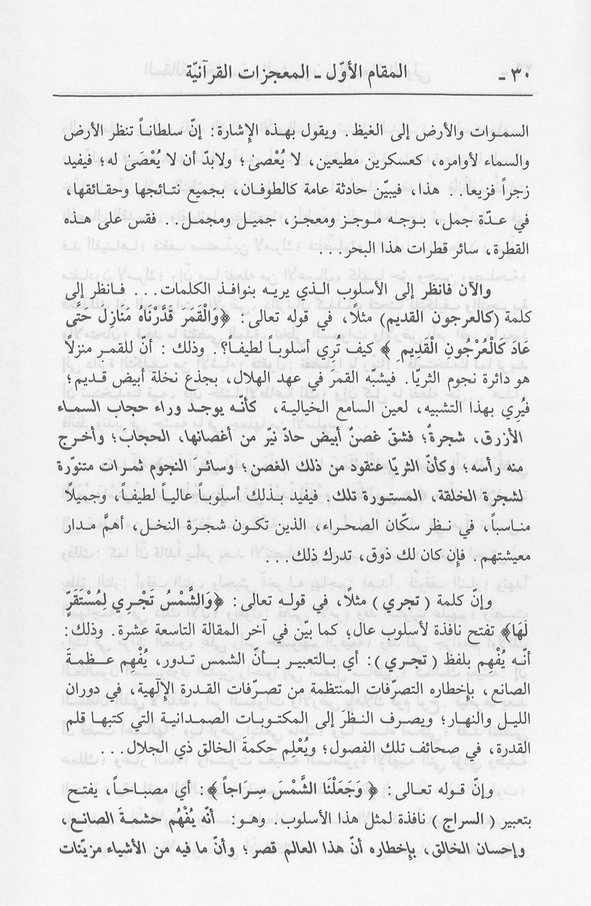 ٣٠ - المقام الأوّل - المعجزات القرآنيّة
السمـوات والأرض إلى الغيظ. ويقول بهـذه الإشارة: إنّ سلطانـاً تنظر الأرض
والسماء لأوامره، كعسكرين مطيعين، لا يُعْصىٰ؛ ولابدّ أن لا يُعْصَىٰ له؛ فيفيد
زجراً فزيعا.. هذا، فيبيّن حادثة عامة كالطوفان، بجميع نتـائجها وحقـائقها،
في عـدّة جمل، بـوجـه مـوجـز ومعجـز، جميـل ومجمـل.. فقس على هـذه
القطرة، سائر قطرات هذا البحر...
والآن فانظر إلى الأسلوب الـذي يريـه بنوافـذ الكلمات... فـانظر إلى
كلمة (كالعرجون القديم) مثلًا، في قوله تعالى: ﴿وَالْقَمَرَ قَدَّرْنَاهُ مَنَازِلَ حَتَّى
عَادَ كَالْعُرْجُونِ الْقَدِيمِ﴾ كيف تُرِي أسلوبـاً لطيفـاً؟. وذلك: أنّ للقمـر منزلًا
هو دائرة نجوم الثريّا. فيشبّه القمرَ في عهد الهلال، بجذع نخلة أبيض قـديم؛
فيُرِي بهذا التشبيه، لعين السامع الخيالية، كأنّـه يوجـد وراء حجاب السمـاء
الأزرق، شجرةٌ؛ فشقّ غصنٌ أبيض حادّ نيّر من أغصانها، الحجابَ؛ وأخـرج
منه رأسه؛ وكأنّ الثريّا عنقود من ذلك الغصن؛ وسائـرَ النجوم ثمـرات متنوّرة
لشجرة الخلقة، المستـورة تلك. فيفيد بـذلك أسلوبـاً عاليـاً لطيفـاً، وجميلًا
منـاسباً، في نـظر سكّان الصحـراء، الذين تكـون شجـرة النخـل، أهمَّ مـدار
معيشتهم. فإن كان لك ذوق، تدرك ذلك...
وإنّ كلمة (تجري) مثلًا، في قولـه تعالى: ﴿وَالشَّمْسُ تَجْـرِي لِمُسْتَقَرٍّ
لَهَا﴾ تفتح نافذة لأسلوب عال؛ كما بيّن في آخر المقالة التاسعة عشرة. وذلك:
أنّـه يُفْهِم بلفظ (تجري): أي بـالتعبير بـأنّ الشمس تـدور، يُفْهِم عـظمـةَ
الصانع، بإخطاره التصرّفات المنتظمة من تصـرّفات القـدرة الإلٓهية، في دوران
الليـل والنهـار؛ ويصـرف النظـرَ إلى المكتـوبـات الصمـدانيـة التي كتبهـا قلم
القدرة، في صحائف تلك الفصول؛ ويُعْلِم حكمةَ الخالق ذي الجلال...
وإنّ قـوله تعـالى: ﴿وَجَعَلْنَا الشَّمْسَ سِـرَاجاً﴾: أي مصبـاحـاً، يفتـح
بتعبير (السراج) نافذة لمثل هذا الأسلوب. وهـو: أنّه يُفْهُم حشمـةَ الصانـع،
وإحسان الخالق، بإخطاره أنّ هـذا العالم قصر؛ وأنّ ما فيه من الأشياء مزيّنات